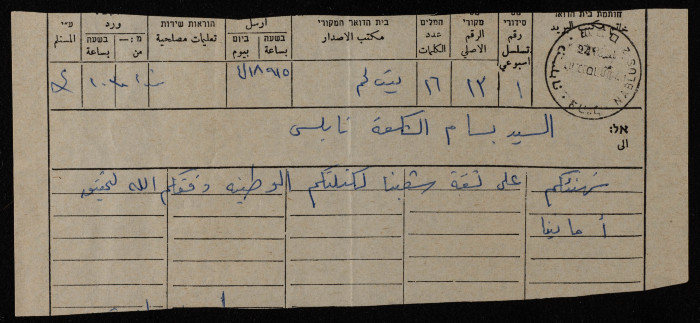 חותמת בית הדואר
مكتب البريد
NABLUS
סידורי
رقم
تسلسل
اسبوعي
מקורי
الرقم
الاصلي
המלים
عدد
الكلمات
בית הדואר המקורי
مكتب الاصدار
ארسل
בשעה
بساعة
ביום
بيوم
הוראות שירות
تعليمات مصلحية
ورد
מ:—
من
בשעה
بساعة
المستلم
١
١٣
١٦
بيت لحم
אל:
الى
السيد بسام الشكعة نابلس
نهنئكم على ثقة شعبنا لكتلتكم الوطنية وفقكم الله لتحقيق
أمانينا